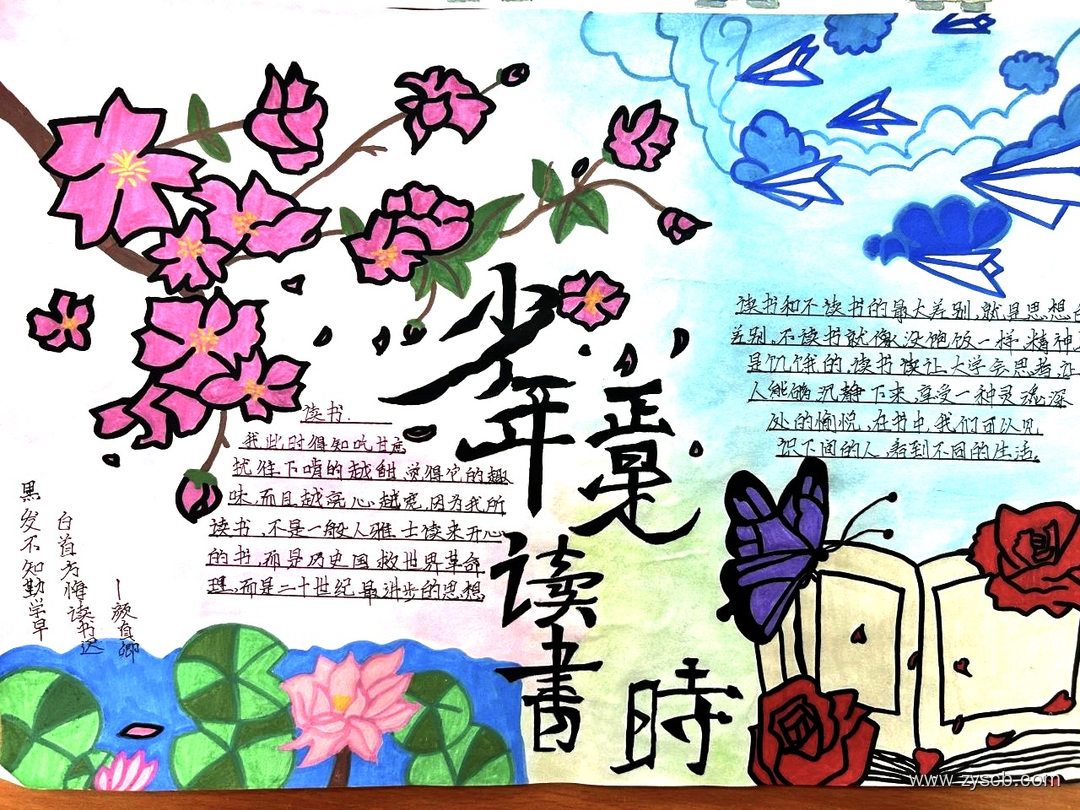 少年
正是
读書
時
读书
我此时得知吮甘忘
扰往下啃的越甜,觉得它的趣
味,而且越亮心越宽,因为我所
读书,不是一般人雅士读来开心
的书,而是历史国救世界革命
理,而是二十世纪最进步的思想
读书和不读书的最大差别,就是思想
差别,不读书就像没饱饭一样精神
是饥饿的,读书让大学会思考,
人能够沉静下来,享受一种灵魂深
处的愉悦,在书中,我们可以见
识下同的人,看到不同的生活。
黑发不知勤学早
白首方悔读书迟
—颜真卿
www.zyscb.com